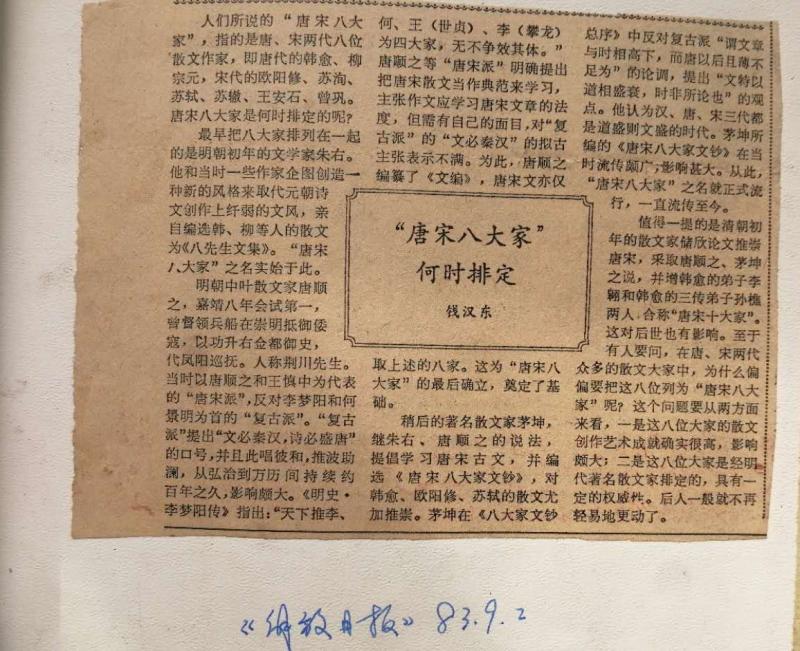 人们所说的“唐宋八大
家”，指的是唐、宋两代八位
散文作家，即唐代的韩愈、柳
宗元，宋代的欧阳修、苏洵、
苏轼、苏辙、王安石、曾巩。
唐宋八大家是何时排定的呢？
最早把八大家排列在一起
的是明朝初年的文学家朱右。
他和当时一些作家企图创造一
种新的风格来取代元朝诗
文创作上纤弱的文风，亲
自编选韩、柳等人的散文
为《八先生文集》。“唐宋
八大家”之名实始于此。
明朝中叶散文家唐顺
之，嘉靖八年会试第一，
曾督领兵船在崇明抵御倭
寇，以功升右佥都御史，
代凤阳巡抚。人称荆川先生。
当时以唐顺之和王慎中为代表
的“唐宋派”，反对李梦阳和何
景明为首的“复古派”。“复古
派”提出“文必秦汉，诗必盛唐”
的口号，并且此唱彼和，推波助
澜，从弘治到万历间持续约
百年之久，影响颇大。《明史·
李梦阳传》指出：“天下推李、
何、王（世贞）、李（攀龙）
为四大家，无不争效其体。”
唐顺之等“唐宋派”明确提出
把唐宋散文当作典范来学习，
主张作文应学习唐宋文章的法
度，但需有自己的面目，对“复
古派”的“文必秦汉”的拟古
主张表示不满。为此，唐顺之
编纂了《文编》，唐宋文亦仅
“唐宋八大家”
何时排定
钱汉东
取上述的八家。这为“唐宋八
大家”的最后确立，奠定了基
础。
稍后的著名散文家茅坤，
继朱右、唐顺之的说法，
提倡学习唐宋古文，并编
选《唐宋八大家文钞》，对
韩愈、欧阳修、苏轼的散文尤
加推崇。茅坤在《八大家文钞
总序》中反对复古派“谓文章
与时相高下，而唐以后且薄不
足为”的论调，提出“文特以
道相盛衰，时非所论也”的观
点。他认为汉、唐、宋三代都
是道盛则文盛的时代。茅坤所
编的《唐宋八大家文钞》在当
时流传颇广，影响甚大。从此，
“唐宋八大家”之名就正式流
行，一直流传至今。
值得一提的是清朝初
年的散文家储欣论文推崇
唐宋，采取唐顺之、茅坤
之说，并增韩愈的弟子李
翱和韩愈的三传弟子孙樵
两人，合称“唐宋十大家”。
这对后世也有影响。至于
有人要问，在唐、宋两代
众多的散文大家中，为什么偏
偏要把这八位列为“唐宋八大
家”呢？这个问题要从两方面
来看，一是这八位大家的散文
创作艺术成就确实很高，影响
颇大；二是这八位大家是经明
代著名散文家排定的，具有一
定的权威性。后人一般就不再
轻易地更动了。
《解放日报》83.9.2